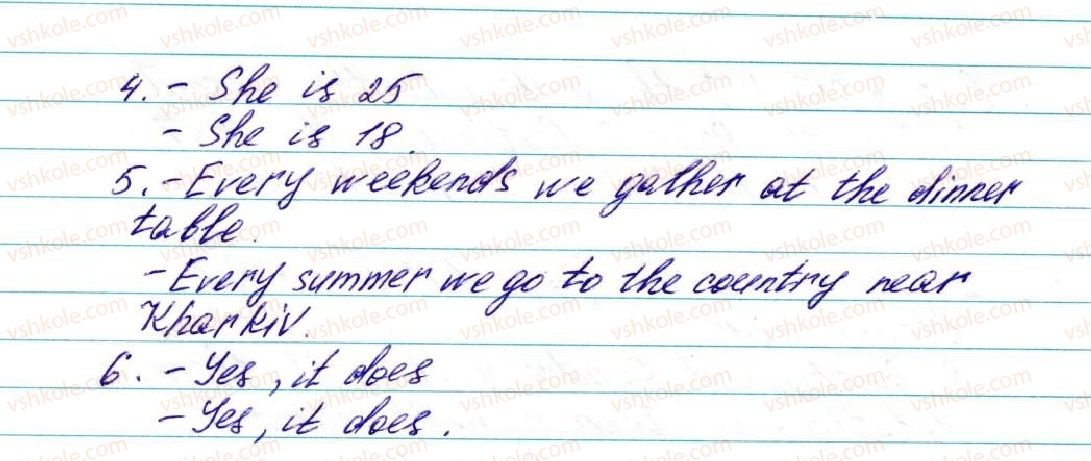 4. - She is 25
- She is 18.
5. - Every weekends we gather at the dinner
table.
- Every summer we go to the country near
Kharkiv.
6. - Yes, it does
- Yes, it does.
vshkole.com